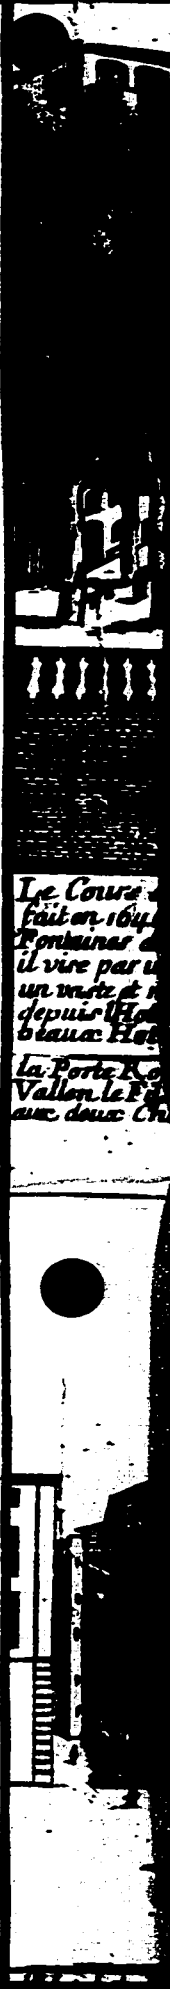 Le Cours
fait en 164
Fontaines
il vire par
un vaste et
depuis l'Ho
beaux Hot
la Porte Ro
Vallon le Pi
aux deux Ch